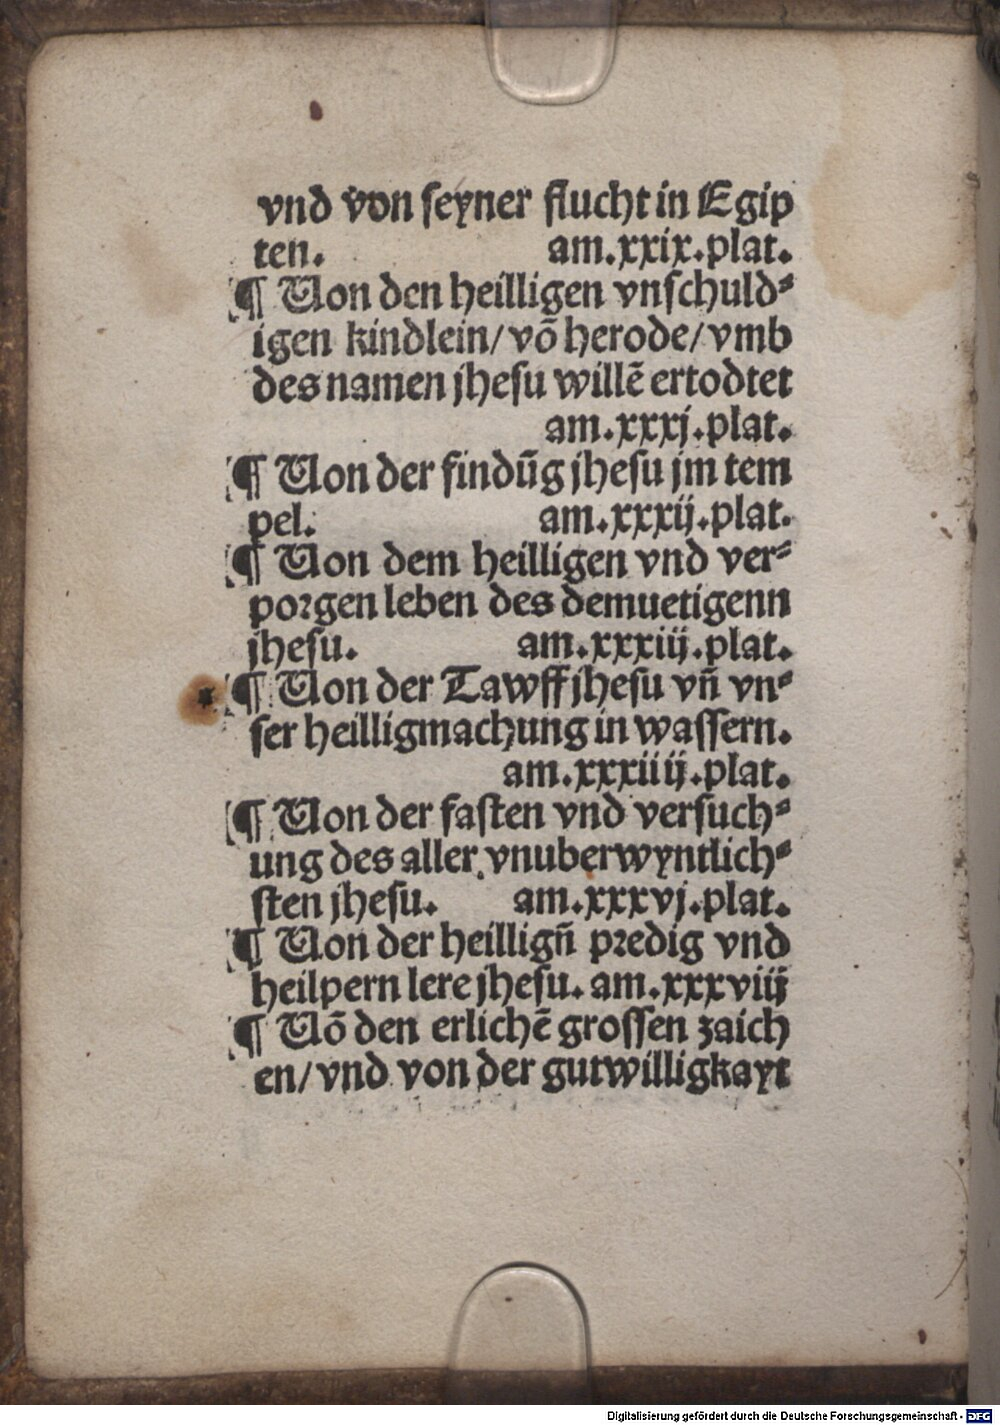 vnd von seyner flucht in Egip
ten. am.xxix.plat.
¶ Von den heilligen vnschuld⸗
igen kindlein/ võ herode/ vmb
des namen jhesu willẽ ertodtet
am.xxxj.plat.
¶ Von der findũg jhesu jm tem
pel. am.xxxij.plat.
¶ Von dem heilligen vnd ver⸗
porgen leben des demuetigenn
jhesu. am.xxxiij.plat.
¶ Von der Tawff jhesu vñ vn⸗
ser heilligmachung in wassern.
am.xxxiiij.plat.
¶ Von der fasten vnd versuch⸗
ung des aller vnuberwyntlich⸗
sten jhesu. am.xxxvj.plat.
¶ Von der heilligñ predig vnd
heilpern lere jhesu. am.xxxviij
¶ Võ den erlichẽ grossen zaich
en/ vnd von der gutwilligkayt
Digitalisierung gefördert durch die Deutsche Forschungsgemeinschaft - DFG